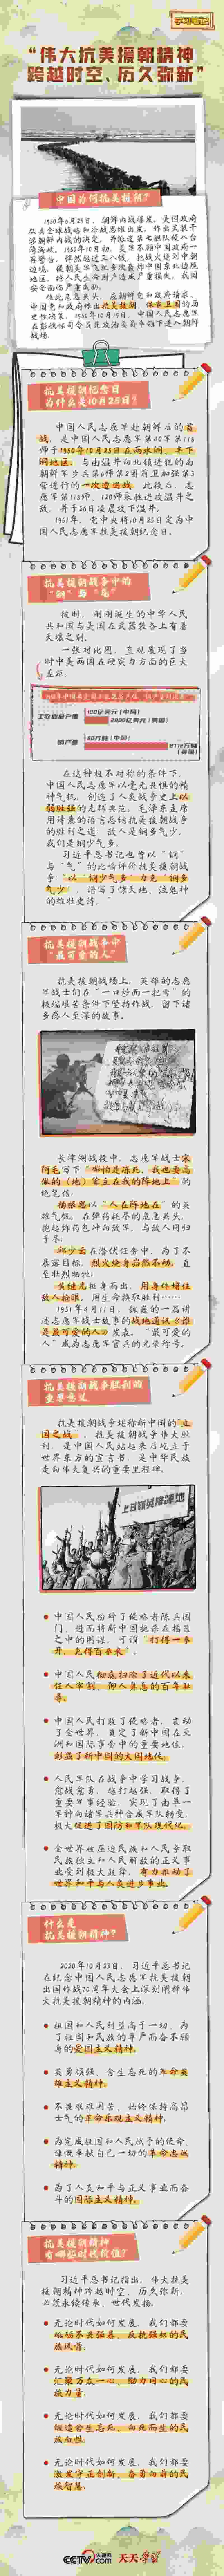 学习笔记
“伟大抗美援朝精神
跨越时空、历久弥新”
中国为何抗美援朝？
1950年6月25日，朝鲜内战爆发。美国政府
从其全球战略和冷战思维出发，作出武装干
涉朝鲜内战的决定，并派遣第七舰队侵入台
湾海峡。1950年10月初，美军不顾中国政府一
再警告，悍然越过三八线，把战火烧到中朝
边境。侵朝美军飞机多次轰炸中国东北边境
地区，给人民生命财产造成严重损失，我国
安全面临严重威胁。
值此危急关头，应朝鲜党和政府请求，
中国党和政府作出抗美援朝、保家卫国的历
史性决策。1950年10月19日，中国人民志愿军
在彭德怀司令员兼政治委员率领下进入朝鲜
战场。
抗美援朝纪念日
为什么是10月25日？
中国人民志愿军赴朝鲜作战的首
战，是中国人民志愿军第40军第118
师于1950年10月25日在两水洞、丰下
洞地区，与由温井向北镇进犯的南
朝鲜军步兵第6师第2团前卫加强第3
营进行的一次遭遇战。此役后，志
愿军第118师、120师乘胜进攻温井之
敌，并于26日凌晨攻下温井。
1951年，党中央将10月25日定为中
国人民志愿军抗美援朝纪念日。
抗美援朝战争中的
“钢”与“气”
彼时，刚刚诞生的中华人民
共和国与美国在武器装备上有着
天壤之别。
一张对比图，直观展现了当
时中美两国在硬实力方面的巨大
差距。
工农业总产值
100亿美元（中国）
2800亿美元（美国）
钢产量
60万吨（中国）
8772万吨
（美国）
在这种极不对称的条件下，
中国人民志愿军以毫无畏惧的精
神气概，创造了人类战争史上以
弱胜强的光辉典范。毛泽东主席
用诗意的语言总结抗美援朝战争
的胜利之道：敌人是钢多气少，
我们是钢少气多。
习近平总书记也曾以“钢”
与“气”的比喻评价抗美援朝战
争：“以‘钢少气多’力克‘钢多
气少’，谱写了惊天地、泣鬼神
的雄壮史诗。”
抗美援朝战争中
“最可爱的人”
抗美援朝战场上，英雄的志愿
军战士们在“一口炒面一把雪”的
极端艰苦条件下坚持作战，留下诸
多感人至深的故事。
长津湖战役中，志愿军战士宋
阿毛写下“哪怕是冻死，我也要高
傲的（地）耸立在我的阵地上”的
绝笔信；
杨根思以“人在阵地在”的英
雄气概，在弹药耗尽的危急关头，
抱起炸药包冲向敌军，与敌人同归
于尽；
邱少云在潜伏任务中，为了不
暴露目标，烈火烧身岿然不动，直
至壮烈牺牲；
黄继光挺身而出，用身体堵住
敌人枪眼，用生命换取胜利……
1951年4月11日，魏巍的一篇讲
述志愿军战士故事的战地通讯《谁
是最可爱的人》发表，“最可爱的
人”成为志愿军官兵的光荣称号。
抗美援朝战争胜利的
重要意义
抗美援朝战争堪称新中国的“立
国之战”，抗美援朝战争伟大胜
利，是中国人民站起来后屹立于
世界东方的宣言书，是中华民族
走向伟大复兴的重要里程碑。
中国人民粉碎了侵略者陈兵国
门、进而将新中国扼杀在摇篮
之中的图谋，可谓“打得一拳
开，免得百拳来”。
中国人民彻底扫除了近代以来
任人宰割、仰人鼻息的百年耻
辱。
中国人民打败了侵略者，震动
了全世界，奠定了新中国在亚
洲和国际事务中的重要地位，
彰显了新中国的大国地位。
人民军队在战争中学习战争，
愈战愈勇，越打越强，取得了
重要军事经验，实现了由单一
军种向诸军兵种合成军队转变，
极大促进了国防和军队现代化。
全世界被压迫民族和人民争取
民族独立和人民解放的正义事
业受到极大鼓舞，有力推动了
世界和平与人类进步事业。
什么是
抗美援朝精神？
2020年10月23日，习近平总书记
在纪念中国人民志愿军抗美援朝
出国作战70周年大会上深刻阐释伟
大抗美援朝精神的内涵：
祖国和人民利益高于一切、为
了祖国和民族的尊严而奋不顾
身的爱国主义精神。
英勇顽强、舍生忘死的革命英
雄主义精神。
不畏艰难困苦、始终保持高昂
士气的革命乐观主义精神。
为完成祖国和人民赋予的使命、
慷慨奉献自己一切的革命忠诚
精神。
为了人类和平与正义事业而奋
斗的国际主义精神。
抗美援朝精神
有哪些时代价值？
习近平总书记指出，伟大抗美
援朝精神跨越时空、历久弥新，
必须永续传承、世代发扬。
无论时代如何发展，我们都要
砥砺不畏强暴、反抗强权的民
族风骨。
无论时代如何发展，我们都要
汇聚万众一心、勠力同心的民
族力量。
无论时代如何发展，我们都要
锻造舍生忘死、向死而生的民
族血性。
无论时代如何发展，我们都要
激发守正创新、奋勇向前的民
族智慧。
CCTV.com 央视网 天天学习